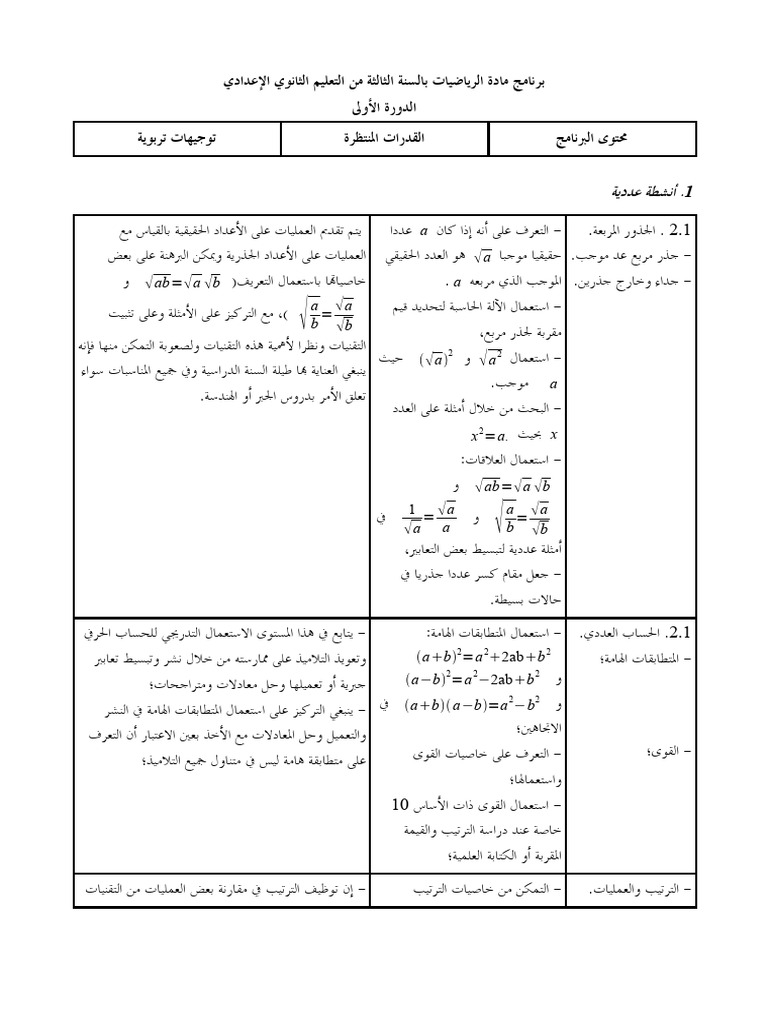 برنامج مادة الرياضيات بالسنة الثالثة من التعليم الثانوي الإعدادي
الدورة الأولى
محتوى البرنامج
القدرات المنتظرة
توجيهات تربوية
1. أنشطة عددية
2.1 . الجذور المربعة.
– جذر مربع عد موجب.
– جداء وخارج جذرين.
– التعرف على أنه إذا كان a عددا
حقيقيا موجبا √a هو العدد الحقيقي
الموجب الذي مربعه a .
– استعمال الآلة الحاسبة لتحديد قيم
مقربة لجذر مربع،
– استعمال √a² و (√a)² حيث
a موجب.
– البحث من خلال أمثلة على العدد
x بحيث x²=a.
– استعمال العلاقات:
√ab=√a√b و
√(a/b)=√a/√b و 1/√a=√a/a في
أمثلة عددية لتبسيط بعض التعابير،
– جعل مقام كسر عددا جذريا في
حالات بسيطة.
يتم تقديم العمليات على الأعداد الحقيقية بالقياس مع
العمليات على الأعداد الجذرية ويمكن البرهنة على بعض
خاصياتها باستعمال التعريف( √ab=√a√b و
√(a/b)=√a/√b )، مع التركيز على الأمثلة وعلى تثبيت
التقنيات ونظرا لأهمية هذه التقنيات ولصعوبة التمكن منها فإنه
ينبغي العناية بها طيلة السنة الدراسية وفي جميع المناسبات سواء
تعلق الأمر بدروس الجبر أو الهندسة.
2.1. الحساب العددي.
– المتطابقات الهامة؛
– القوى؛
– استعمال المتطابقات الهامة:
(a+b)²=a²+2ab+b²
و (a−b)²=a²−2ab+b²
و (a+b)(a−b)=a²−b² في
الاتجاهين؛
– التعرف على خاصيات القوى
واستعمالها؛
– استعمال القوى ذات الأساس 10
خاصة عند دراسة الترتيب والقيمة
المقربة أو الكتابة العلمية؛
– يتابع في هذا المستوى الاستعمال التدريجي للحساب الحرفي
وتعويذ التلاميذ على ممارسته من خلال نشر وتبسيط تعابير
جبرية أو تعميلها وحل معادلات ومتراجحات؛
– ينبغي التركيز على استعمال المتطابقات الهامة في النشر
والتعميل وحل المعادلات مع الأخذ بعين الاعتبار أن التعرف
على متطابقة هامة ليس في متناول جميع التلاميذ؛
– الترتيب والعمليات.
– التمكن من خاصيات الترتيب
– إن توظيف الترتيب في مقارنة بعض العمليات من التقنيات